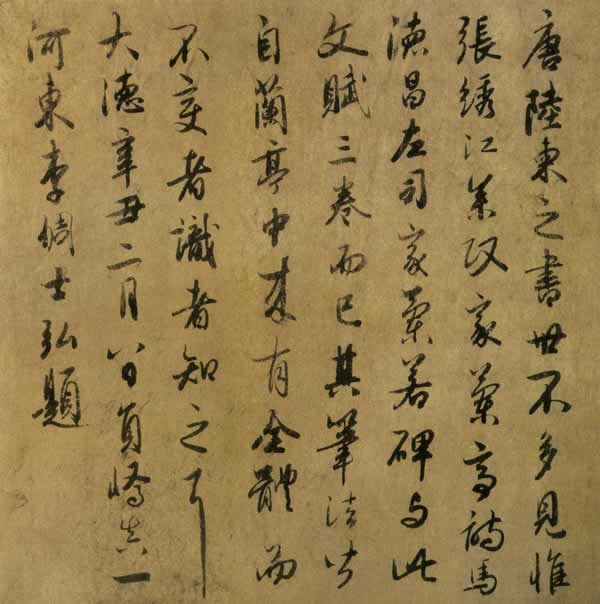 唐陸柬之書世不多見惟
張綉江參政家蘭亭詩馬
德昌左司家蘭若碑与此
文賦三卷而已其筆法皆
自蘭亭中來有全體而
不變者識者知之耳
大德辛丑二月八日員嶠真一
河東李倜士弘題